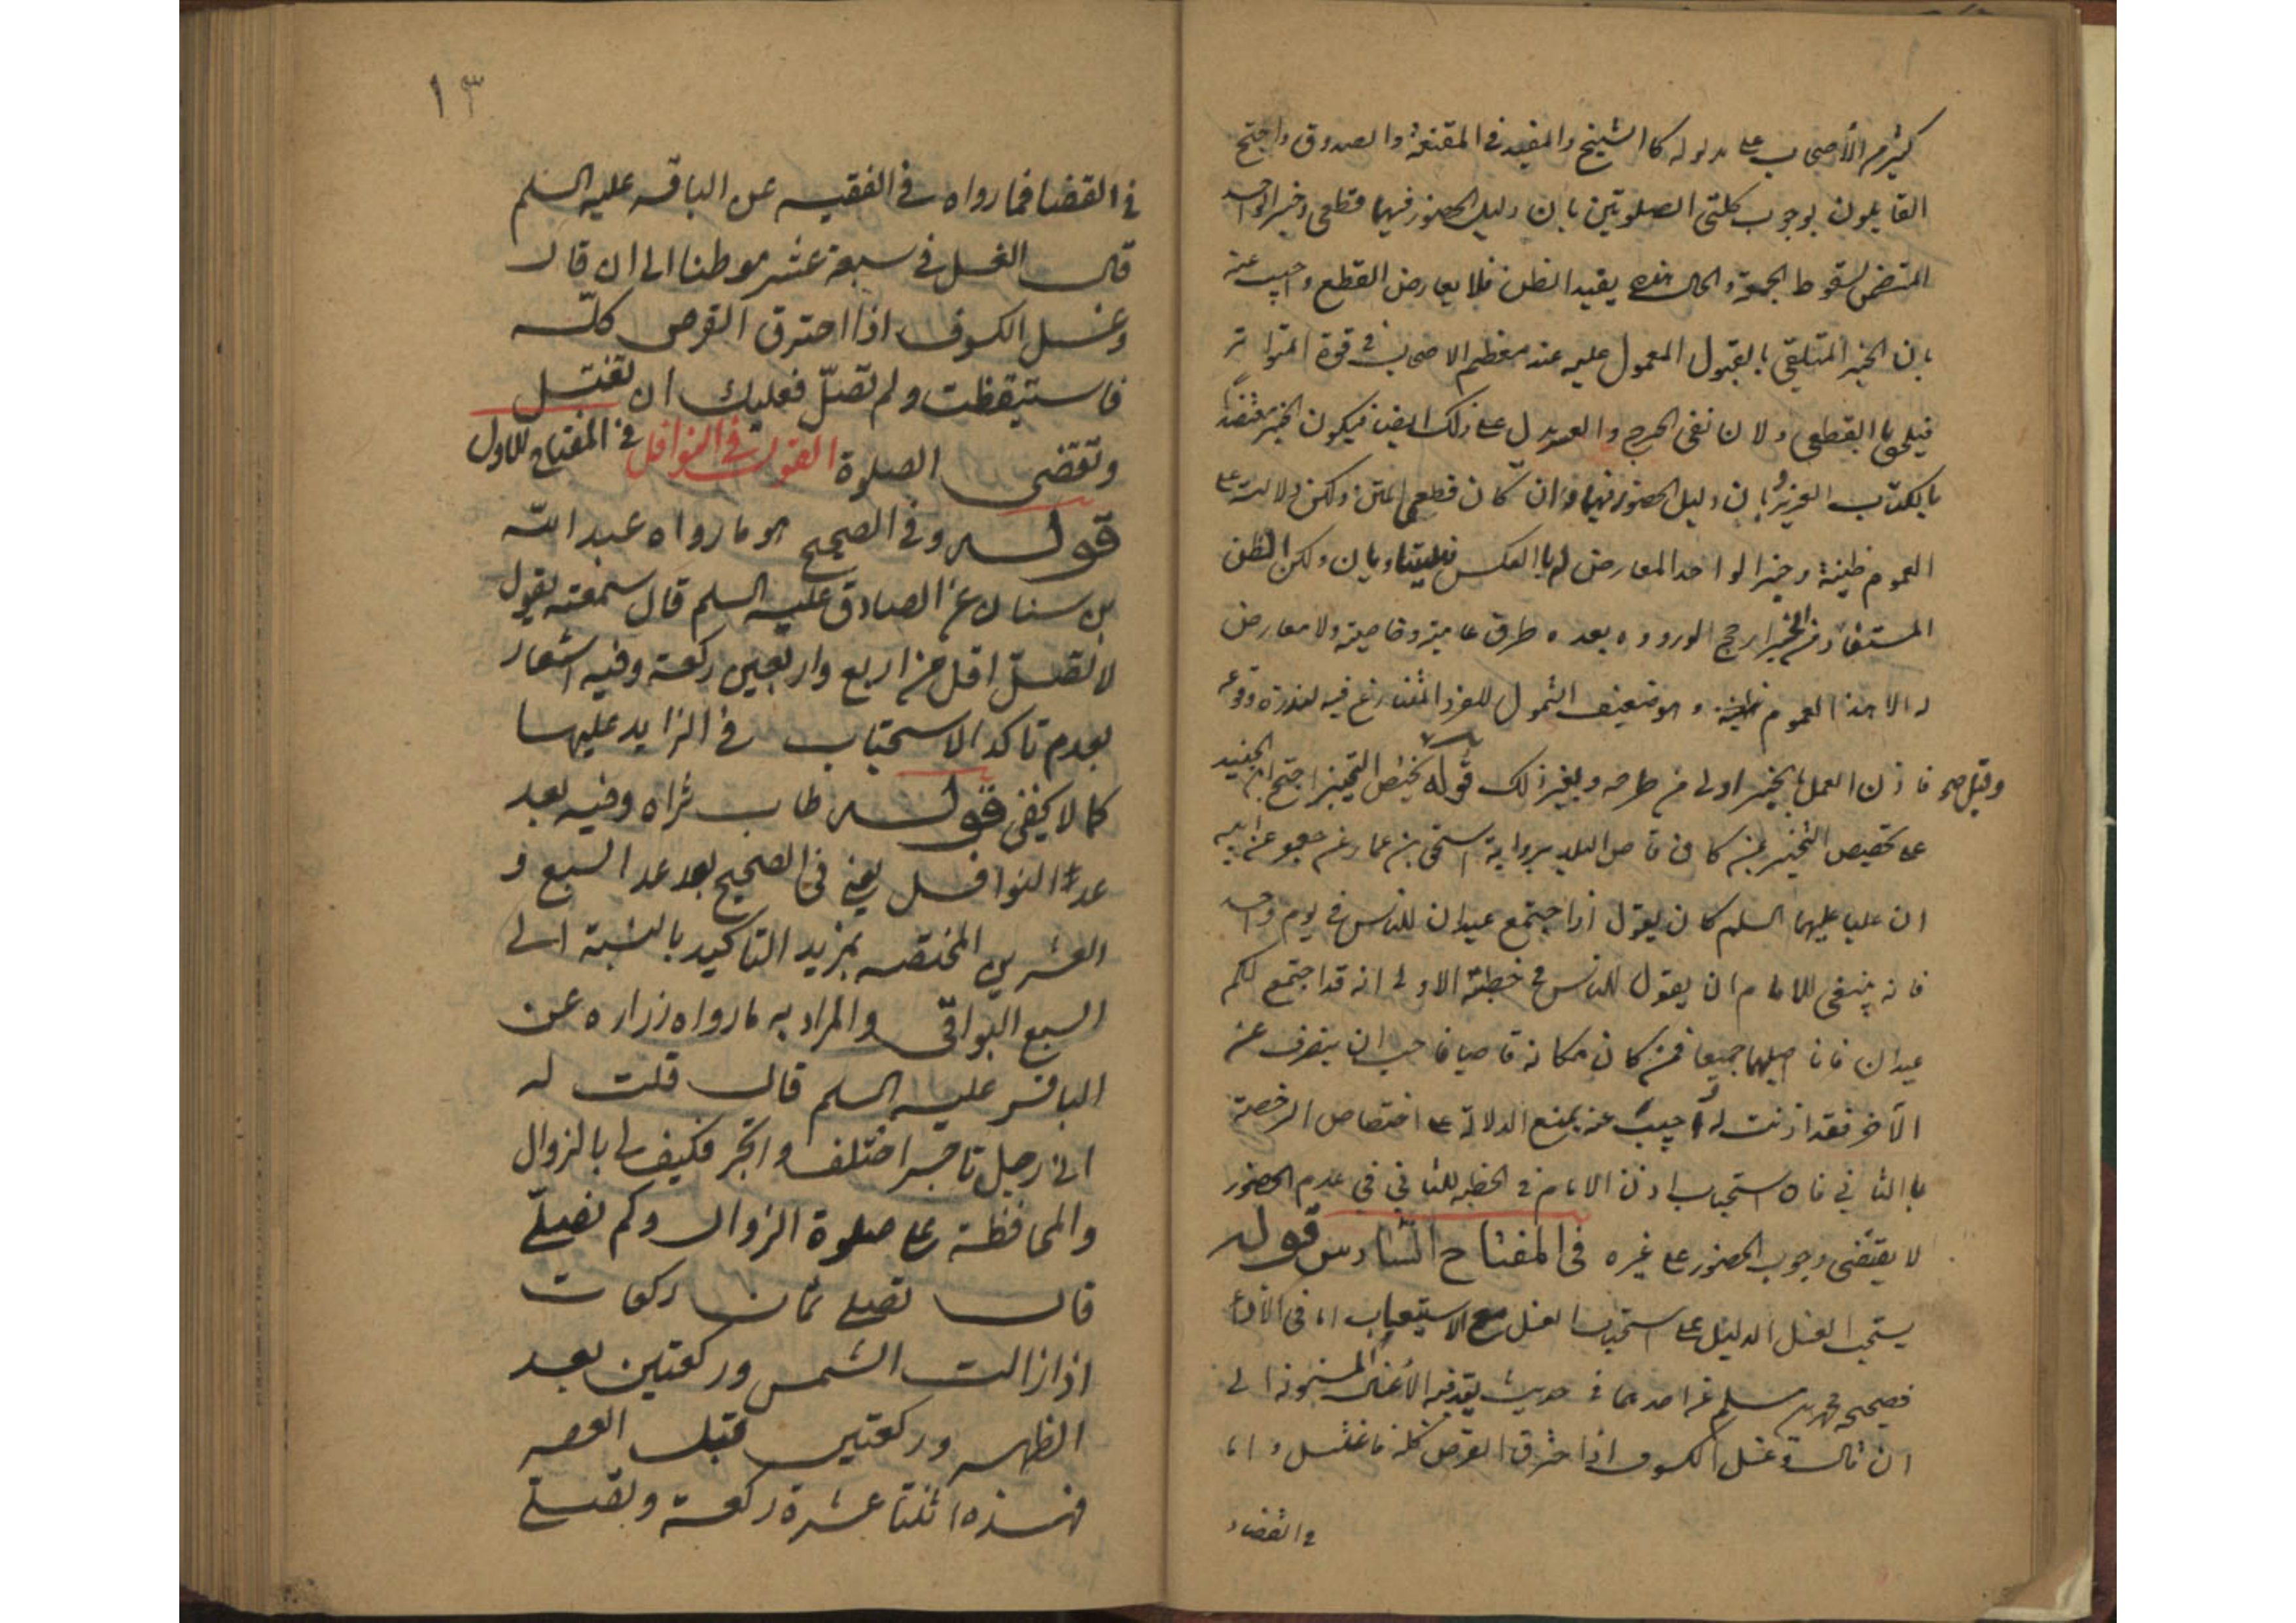 كثير من الأصحاب على مدلوله كالشيخ والمفيد في المقنعة والصدوق واحتج
القايلون بوجوب كلتي الصلوتين بان دليل الحضور فيهما قطعي وخبر الواحد
المتضمن لسقوط الجمعة والحال هذه يفيد الظن فلا يعارض القطع واجيب عنه
بان الخبر المتلقى بالقبول المعمول عليه عند معظم الاصحاب في قوة المتواتر
فيلحق بالقطعي ولان نفى الحرج يدل على ذلك ايضا فيكون الخبر معتضدا
بالكتاب العزيز وبان دليل الحضور فيهما وان كان قطعي المتن ولكن دلالته على
العموم ظنية وخبر الواحد المعارض له بالعكس فليتساويان ولكن الظن
المستفاد من الخبر ارجح لوروده بعده طرق عامية وخاصية ولا معارض
له الا هذا العموم وهو ضعيف الشمول للفرد المتنازع فيه لندرة وقوعه
وقيل هو فاذن العمل بالخبر اولى من طرحه ولغير ذلك قوله يختص التخيير احتج ابن الجنيد
على تخصيص التخيير بمن كان قاصي البلد برواية اسحق بن عمار عن جعفر عن ابيه
ان عليا عليهما السلم كان يقول اذا اجتمع عيدان للناس في يوم واحد
فانه ينبغي للامام ان يقول للناس في خطبته الاولى انه قد اجتمع لكم
عيدان فانا اصليهما جميعا فمن كان مكانه قاصيا فاحب ان ينصرف عن
الآخر فقد اذنت له واجيب عنه بمنع الدلالة على اختصاص الرخصة
بالنائي فان استحباب اذن الامام في الخطبة للنائي في عدم الحضور
لا يقتضى وجوب الحضور على غيره في المفتاح السادس قوله
يستحب الغسل الدليل على استحباب الغسل مع الاستيعاب اما في الأداء
فصحيحة محمد بن مسلم عن احدهما في حديث يعد فيه الأغسال المسنونة الى
ان قال وغسل الكسوف اذا احترق القرص كله فاغتسل واما
في القضاء
١٣
في القضا فما رواه في الفقيه عن الباقر عليه السلم
قال الغسل في سبعة عشر موطنا الى ان قال
وغسل الكسوف اذا احترق القرص كله
فاستيقظت ولم تصلّ فعليك ان تغتسل
وتقضى الصلوة القول في النوافل في المفتاح الاول
قوله وفي الصحيح هو ما رواه عبد الله
بن سنان عن الصادق عليه السلم قال سمعته يقول
لا تصلّ اقل من اربع واربعين ركعة وفيه اشعار
بعدم تاكد الاستحباب في الزايد عليها
كما لا يخفى قوله طاب ثراه وفيه بعد
عد النوافل يعنى في الصحيح بعد عد السبع و
العشرين المختصه بمزيد التاكيد بالنسبة الى
السبع البواقى والمراد به ما رواه زراره عن
الباقر عليه السلم قال قلت له
انى رجل تاجر اختلف واتجر فكيف لي بالزوال
والمحافظة على صلوة الزوال وكم نصلّي
قال تصلى ثمان ركعات
اذا زالت الشمس وركعتين بعد
الظهر وركعتين قبل العصر
فهذه اثنتا عشرة ركعة وتصلي